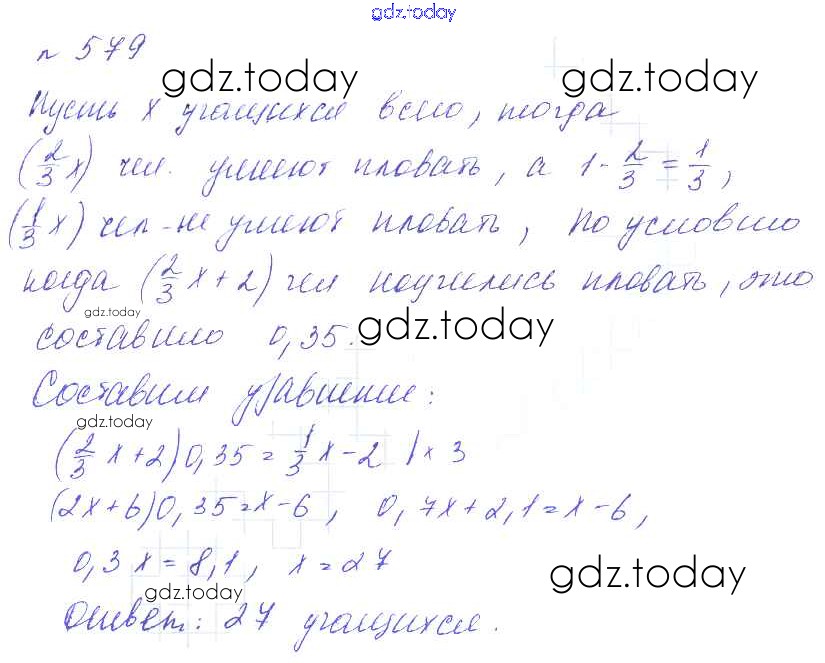 gdz.today
№ 579
gdz.today gdz.today
Пусть x учащихся всего, тогда
(2/3 x) чел. умеют пловать, а 1 - 2/3 = 1/3,
(1/3 x) чел - не умеют пловать, по условию
когда (2/3 x + 2) чел научились пловать, это
gdz.today
составило 0,35.
gdz.today
Составим уравнение:
gdz.today
(2/3 x + 2) 0,35 = 1/3 x - 2 | × 3
(2x + 6) 0,35 = x - 6, 0,7x + 2,1 = x - 6,
0,3x = 8,1, x = 27
gdz.today gdz.today
Ответ: 27 учащихся.